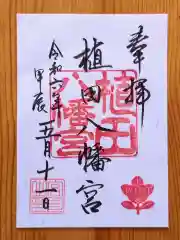 奉拝
植田八幡宮
令和六年
甲辰
五月十一日
植田
八幡宮